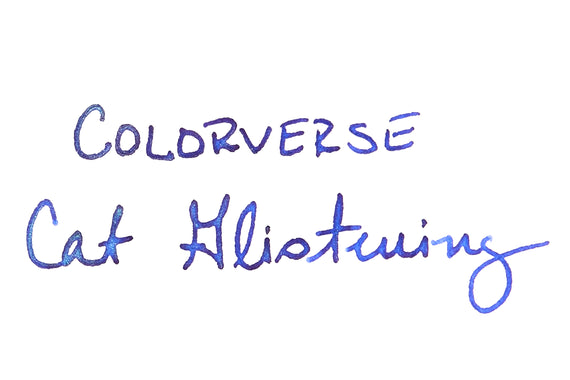 COLORVERSE
Cat Glistening